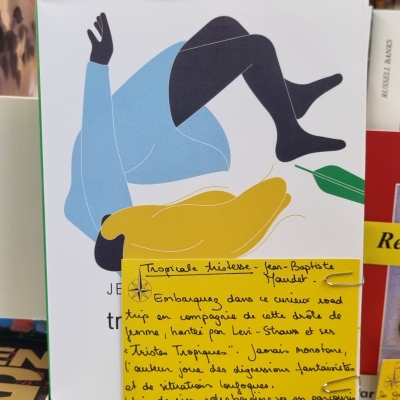 RUSSELL BANKS
Re
JE
tr
Tropicale tristesse - Jean-Baptiste
Maudet.
Embarquez dans ce curieux road
trip en compagnie de cette drôle de
femme, hantée par Levi-Strauss et ses
"Tristes Tropiques". Jamais monotone,
l'auteur joue des digressions fantaisistes
et de situations loufoques.
EN